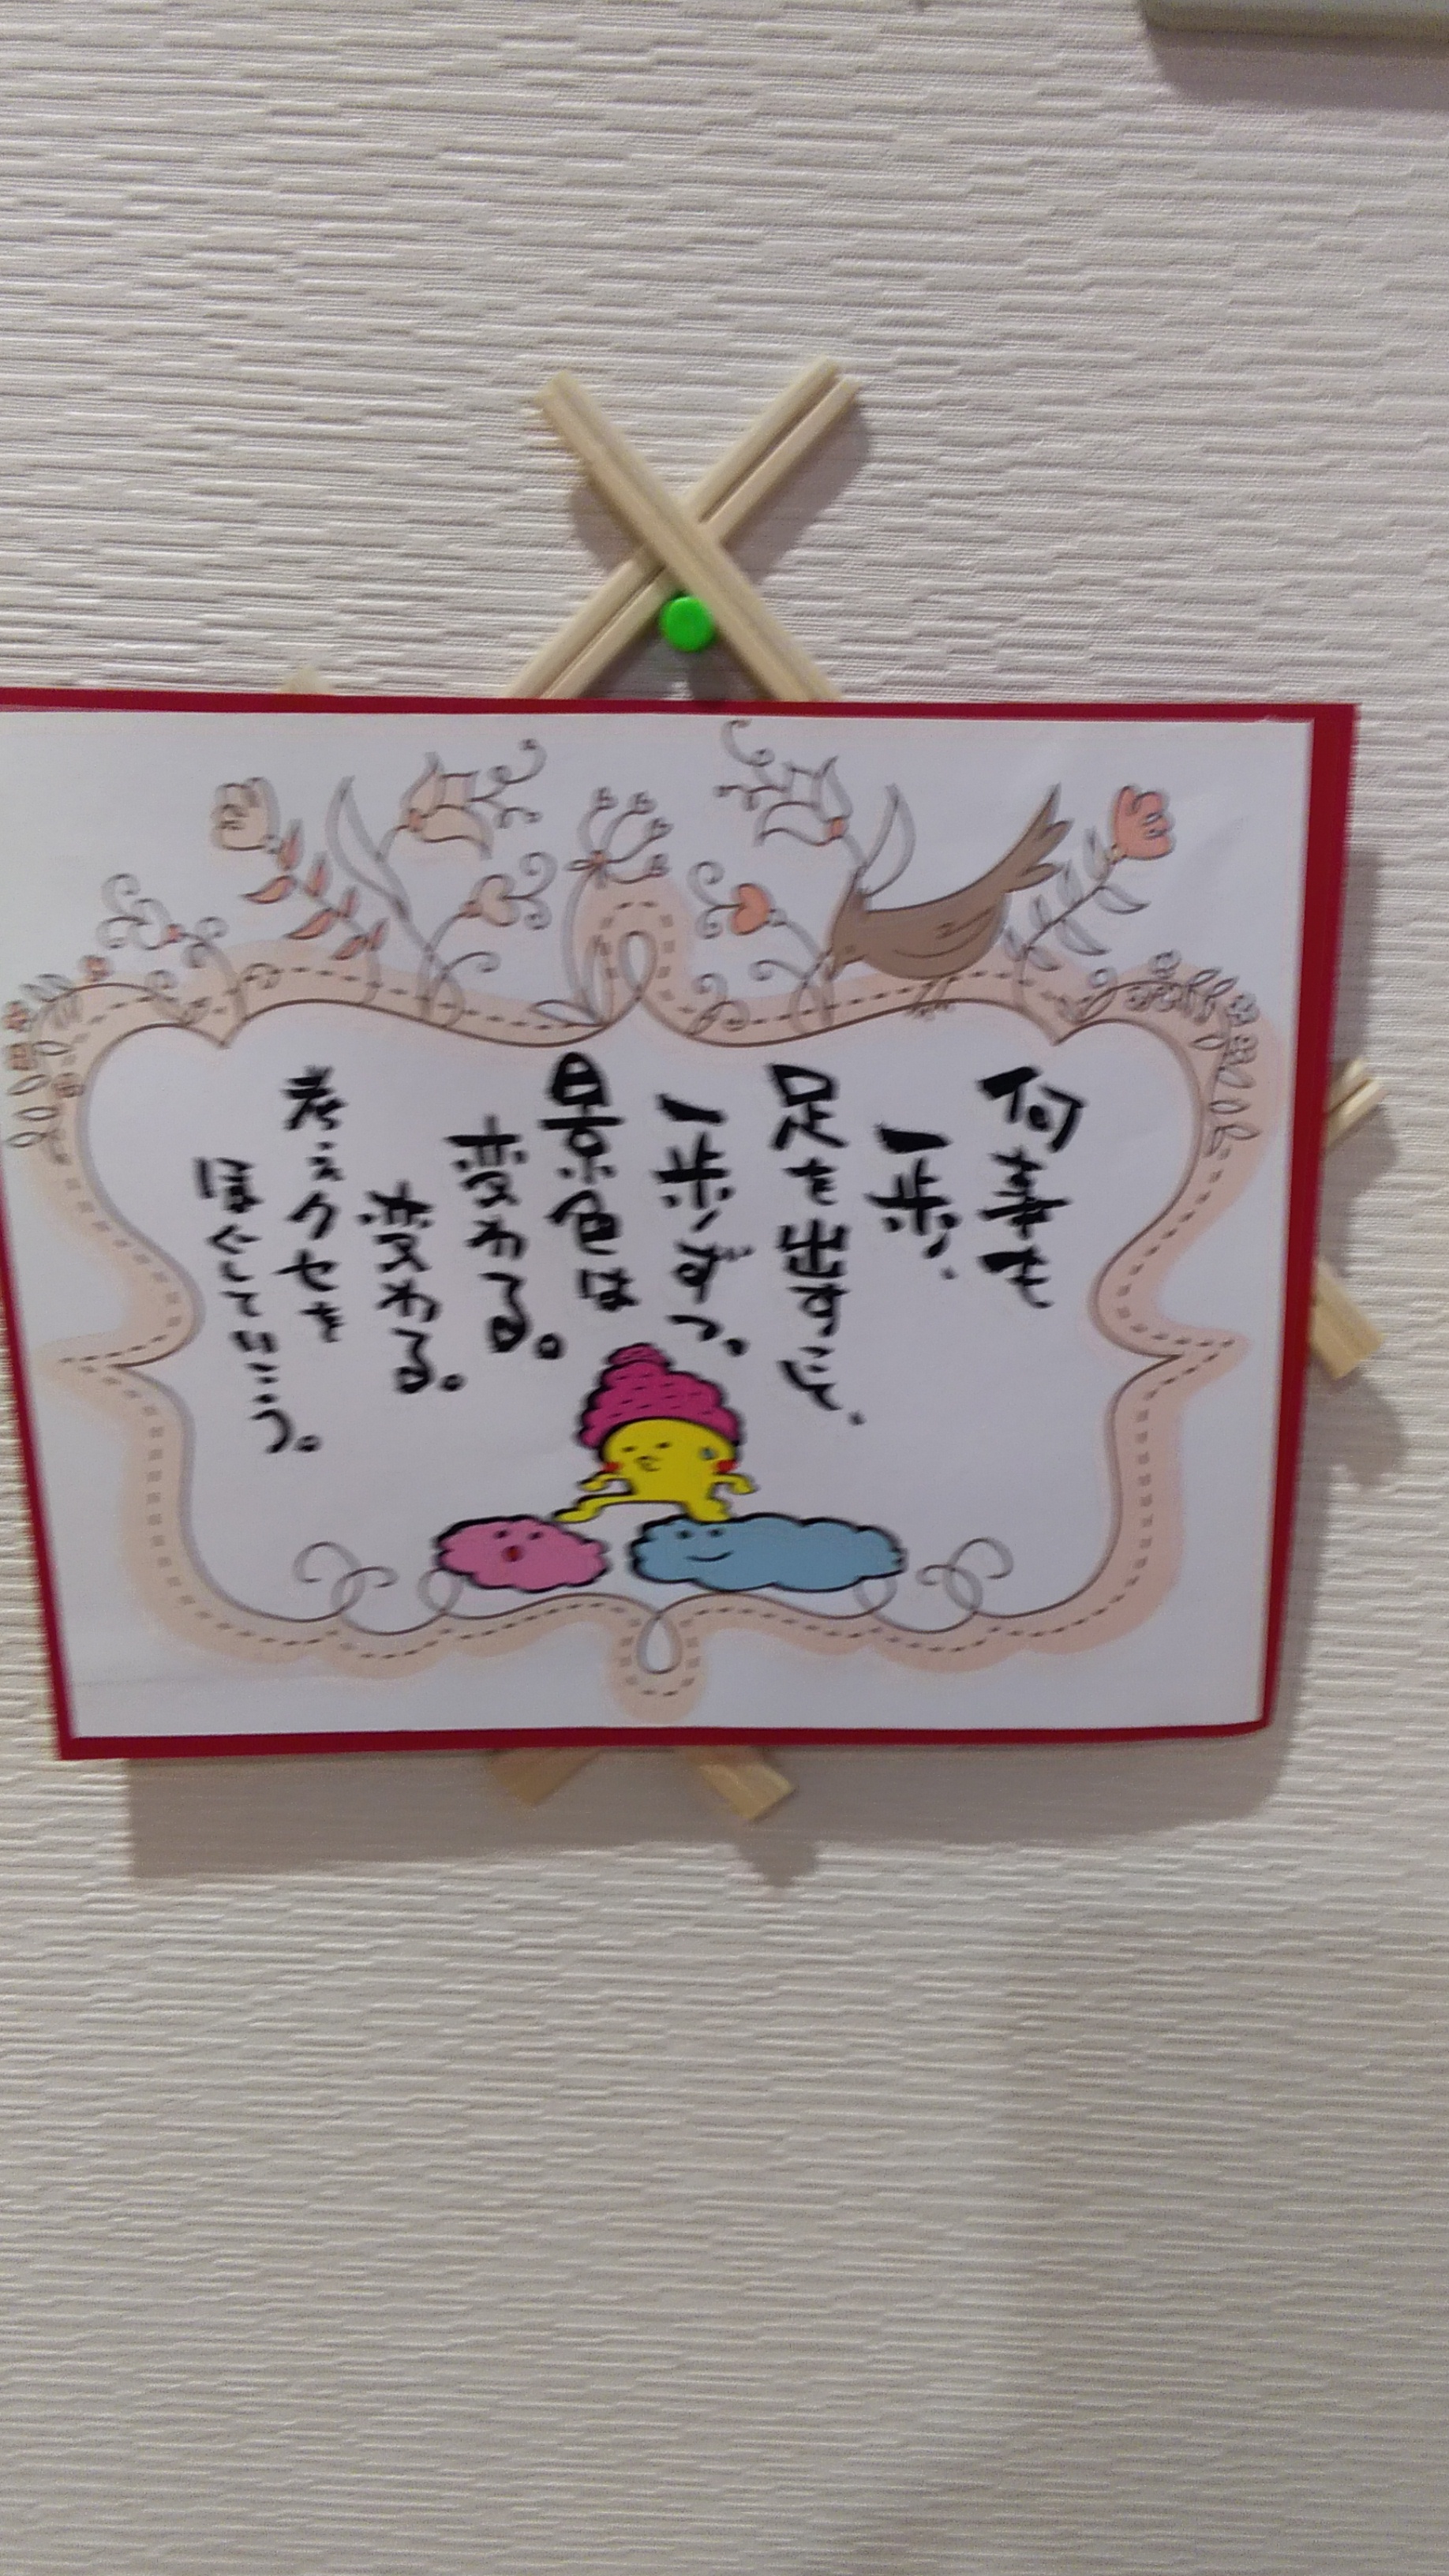 何事も
一歩、
足を出すごと、
一歩ずつ、
景色は
変わる。
変わる。
考えクセを
ほぐしていこう。